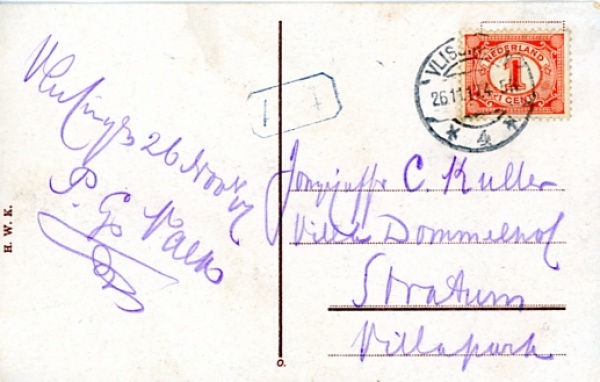 Vlissingen 26 Nov
H. W. K.
VLISS
26.11.1
4
NEDERLAND
1
CENT
Jonejuffr C. Kuller
Villa Dommelhof
Stratum
Villapark
O.